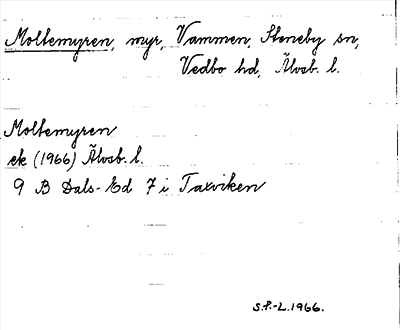 Moltemyren, myr, Vammen, Steneby sn,
Vedbo hd, Älvsb. l.
Moltemyren
ek (1966) Älvsb. l.
9 B Dals-Ed 7 i Taxviken
S.P.-L. 1966.